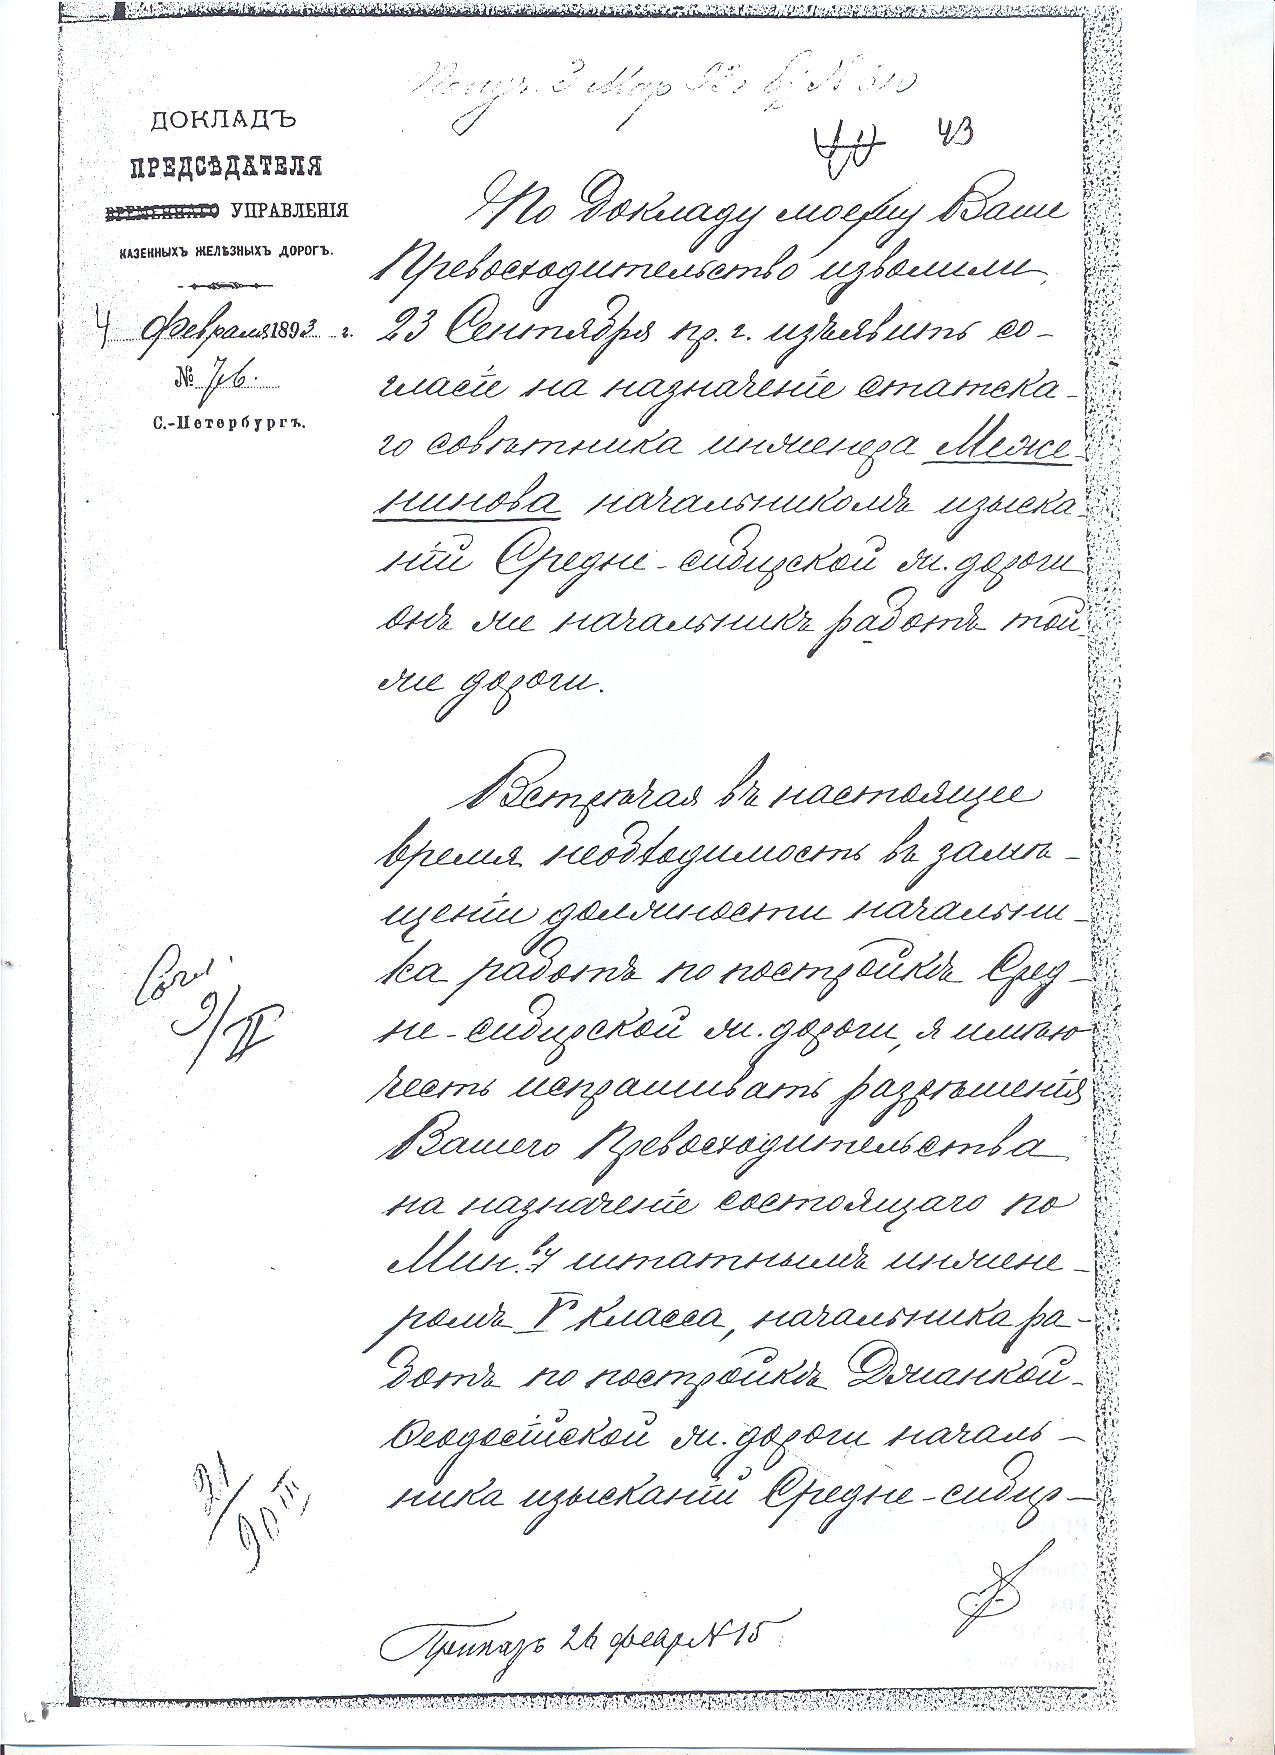 Получ. 3 Мар 93 № 510
43
ДОКЛАДЪ
ПРЕДСѢДАТЕЛЯ
ВРЕМЕННАГО УПРАВЛЕНІЯ
КАЗЕННЫХЪ ЖЕЛѢЗНЫХЪ ДОРОГЪ.
4 Февраля 1893 г.
№ 76.
С.-Петербургъ.
По докладу моему Ваше
Превосходительство изволили
23 Сентября пр. г. изъявить со-
гласіе на назначеніе статска-
го совѣтника инженера Меже-
нинова начальникомъ изыска-
ній Средне-сибирской ж. дороги
онъ же начальникъ работъ той
же дороги.
Встрѣчая въ настоящее
время необходимость въ замѣ-
щеніи должности начальни-
ка работъ по постройкѣ Сред-
не-сибирской ж. дороги, я имѣю
честь испрашивать разрѣшенія
Вашего Превосходительства
на назначеніе состоящаго по
Мин.ву штатнымъ инжене-
ромъ V класса, начальника ра-
ботъ по постройкѣ Джанкой-
Ѳеодосійской ж. дороги началь-
ника изысканій Средне-сибир-
Согл.
9/II
Приказъ 26 февр № 15